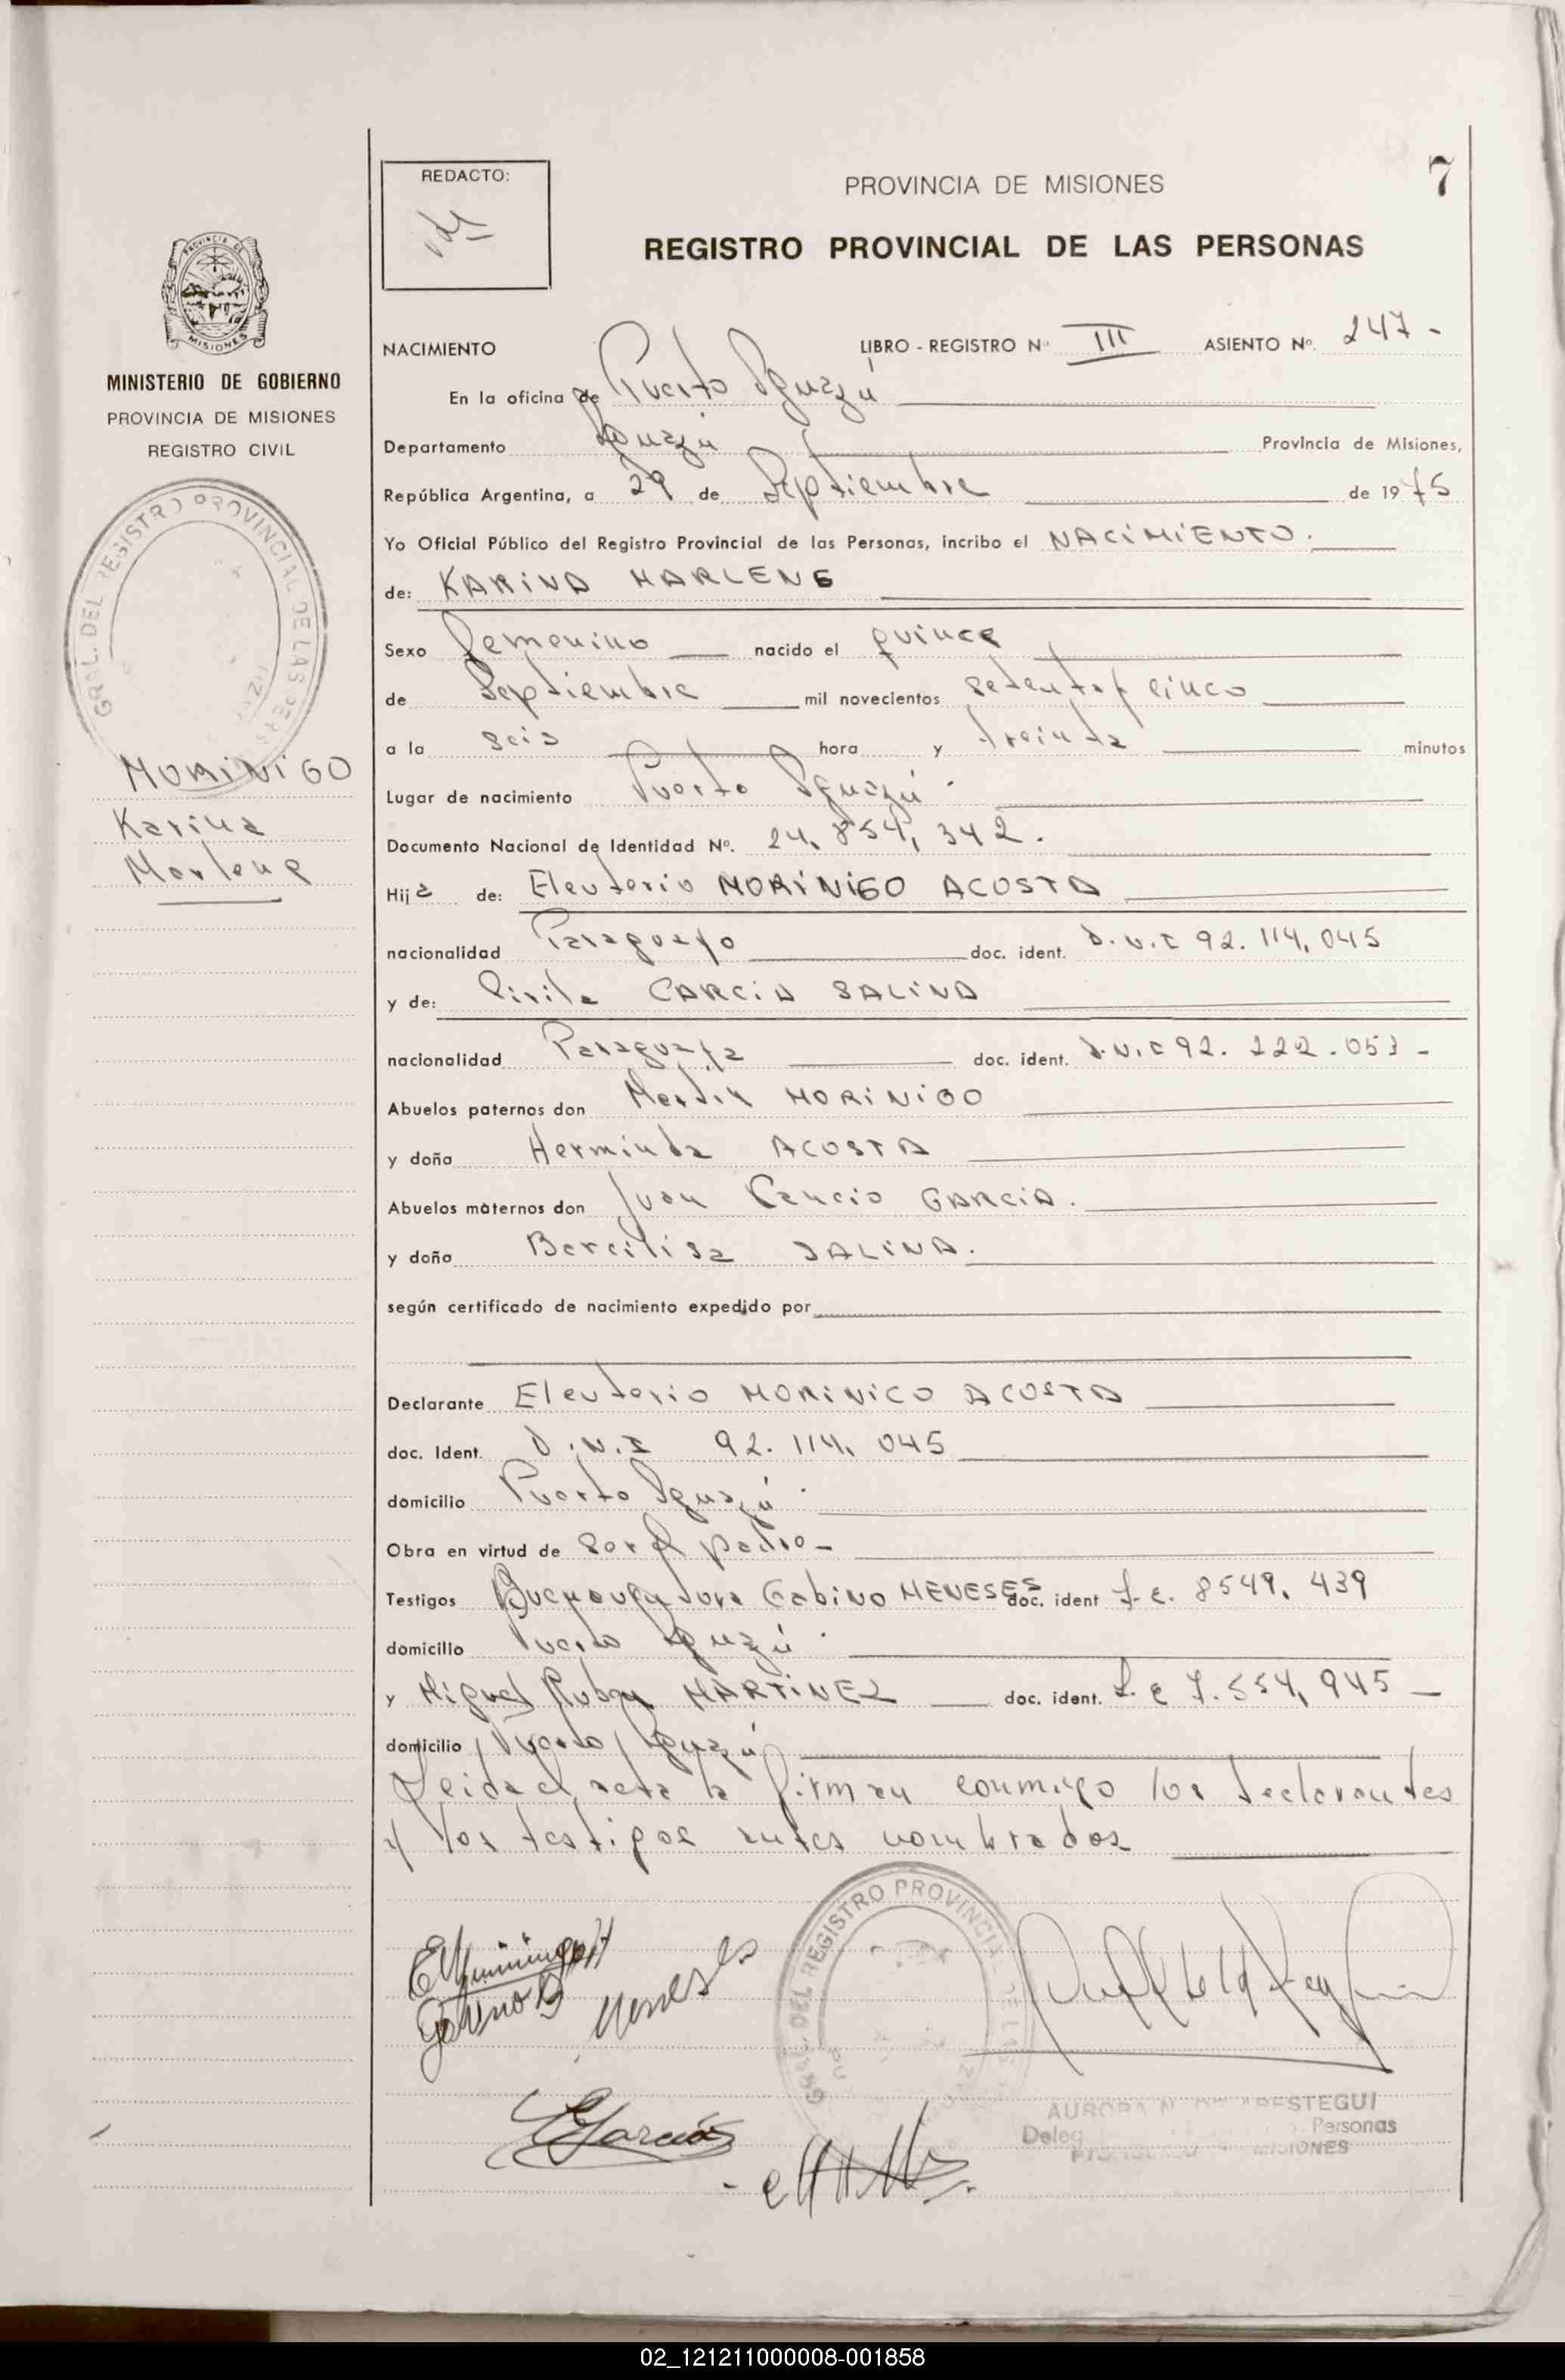 REDACTO:
PROVINCIA DE MISIONES
7
REGISTRO PROVINCIAL DE LAS PERSONAS
NACIMIENTO LIBRO - REGISTRO Nº III ASIENTO Nº. 247 -
En la oficina de Puerto Iguazú
Departamento Iguazú Provincia de Misiones,
República Argentina, a 29 de Septiembre de 1975
Yo Oficial Público del Registro Provincial de las Personas, incribo el NACIMIENTO.
de: KARINA MARLENE
Sexo femenino nacido el quince
de Septiembre mil novecientos setenta y cinco
a la seis hora y treinta minutos
Lugar de nacimiento Puerto Iguazú.
Documento Nacional de Identidad Nº. 24.854.342.
Hija de: Eleuterio MORINIGO ACOSTA
nacionalidad Paraguayo doc. ident. D.N.I 92.114.045
y de: GARCIA SALINA
nacionalidad Paraguaya doc. ident. D.N.I 92.122.053 -
Abuelos paternos don MORINIGO
y doña Herminda ACOSTA
Abuelos maternos don Juan Cancio GARCIA.
y doña Bercilisa SALINA.
según certificado de nacimiento expedido por
Declarante Eleuterio MORINIGO ACOSTA
doc. Ident. D.N.I 92.114.045
domicilio Puerto Iguazú.
Obra en virtud de ser el padre -
Testigos Buenaventura Gabino MENESES doc. ident L.E. 8549.439
domicilio Puerto Iguazú.
y Miguel Ruben MARTINEZ doc. ident. L.E 7.554.945 -
domicilio Puerto Iguazú
Leida el acta la firman conmigo los declarantes
y los testigos antes nombrados
Gabino B Meneses
EGarcia
AURORA
Deleg Personas
MISIONES
PROVINCIA DE
MISIONES
MINISTERIO DE GOBIERNO
PROVINCIA DE MISIONES
REGISTRO CIVIL
GRAL. DEL REGISTRO PROVINCIAL DE LAS PERS
MORINIGO
Karina
Marlene
GRAL. DEL REGISTRO PROVINCIAL DE LAS
02_121211000008-001858